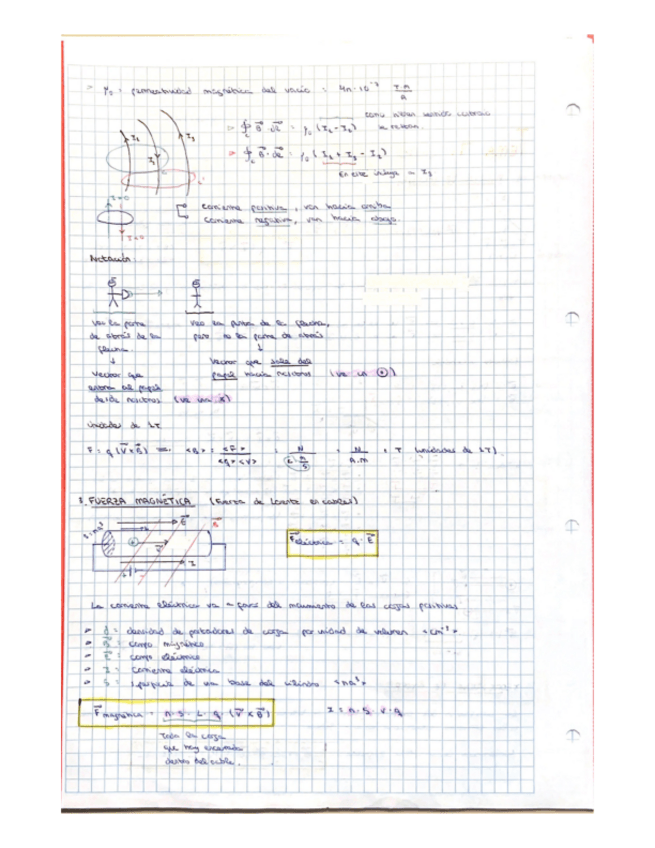 > μ₀ = permeabilidad magnética del vacío = 4π·10⁻⁷ T·m/A
I₁ I₂ I₃
=> ∮c B⃗·dl⃗ = μ₀ (I₁-I₂)
se restan.
> ∮c B⃗·dl⃗ = μ₀ (I₁+I₃-I₂)
I>0
corriente positiva, van hacia arriba
corriente negativa, van hacia abajo
I<0
Notación
veo la parte de atrás de la flecha.
↓
vector que entra al papel desde nosotros (ve un x)
veo la punta de la flecha, pero no la parte de atrás
↓
vector que sale del papel hacia nosotros (ve un ⊙)
Unidades de LT
F = q (v⃗ x B⃗) => <B> = <F> / <q><v> = N / C·m/s = N / A·m = T (unidades de LT)
2. FUERZA MAGNÉTICA (Fuerza de Lorentz en cables)
F⃗eléctrica = q · E⃗
La corriente eléctrica va a favor del movimiento de las cargas positivas
densidad de portadores de carga por unidad de volumen <m⁻³>
> B⃗ = campo magnético
> E⃗ = campo eléctrico
> I = corriente eléctrica
> S = superficie de una base del cilindro <m²>
F⃗ magnética = n · S · L · q (v⃗ x B⃗) I = n · S · v · q
Toda la carga
que hay encerrada
dentro del cable.